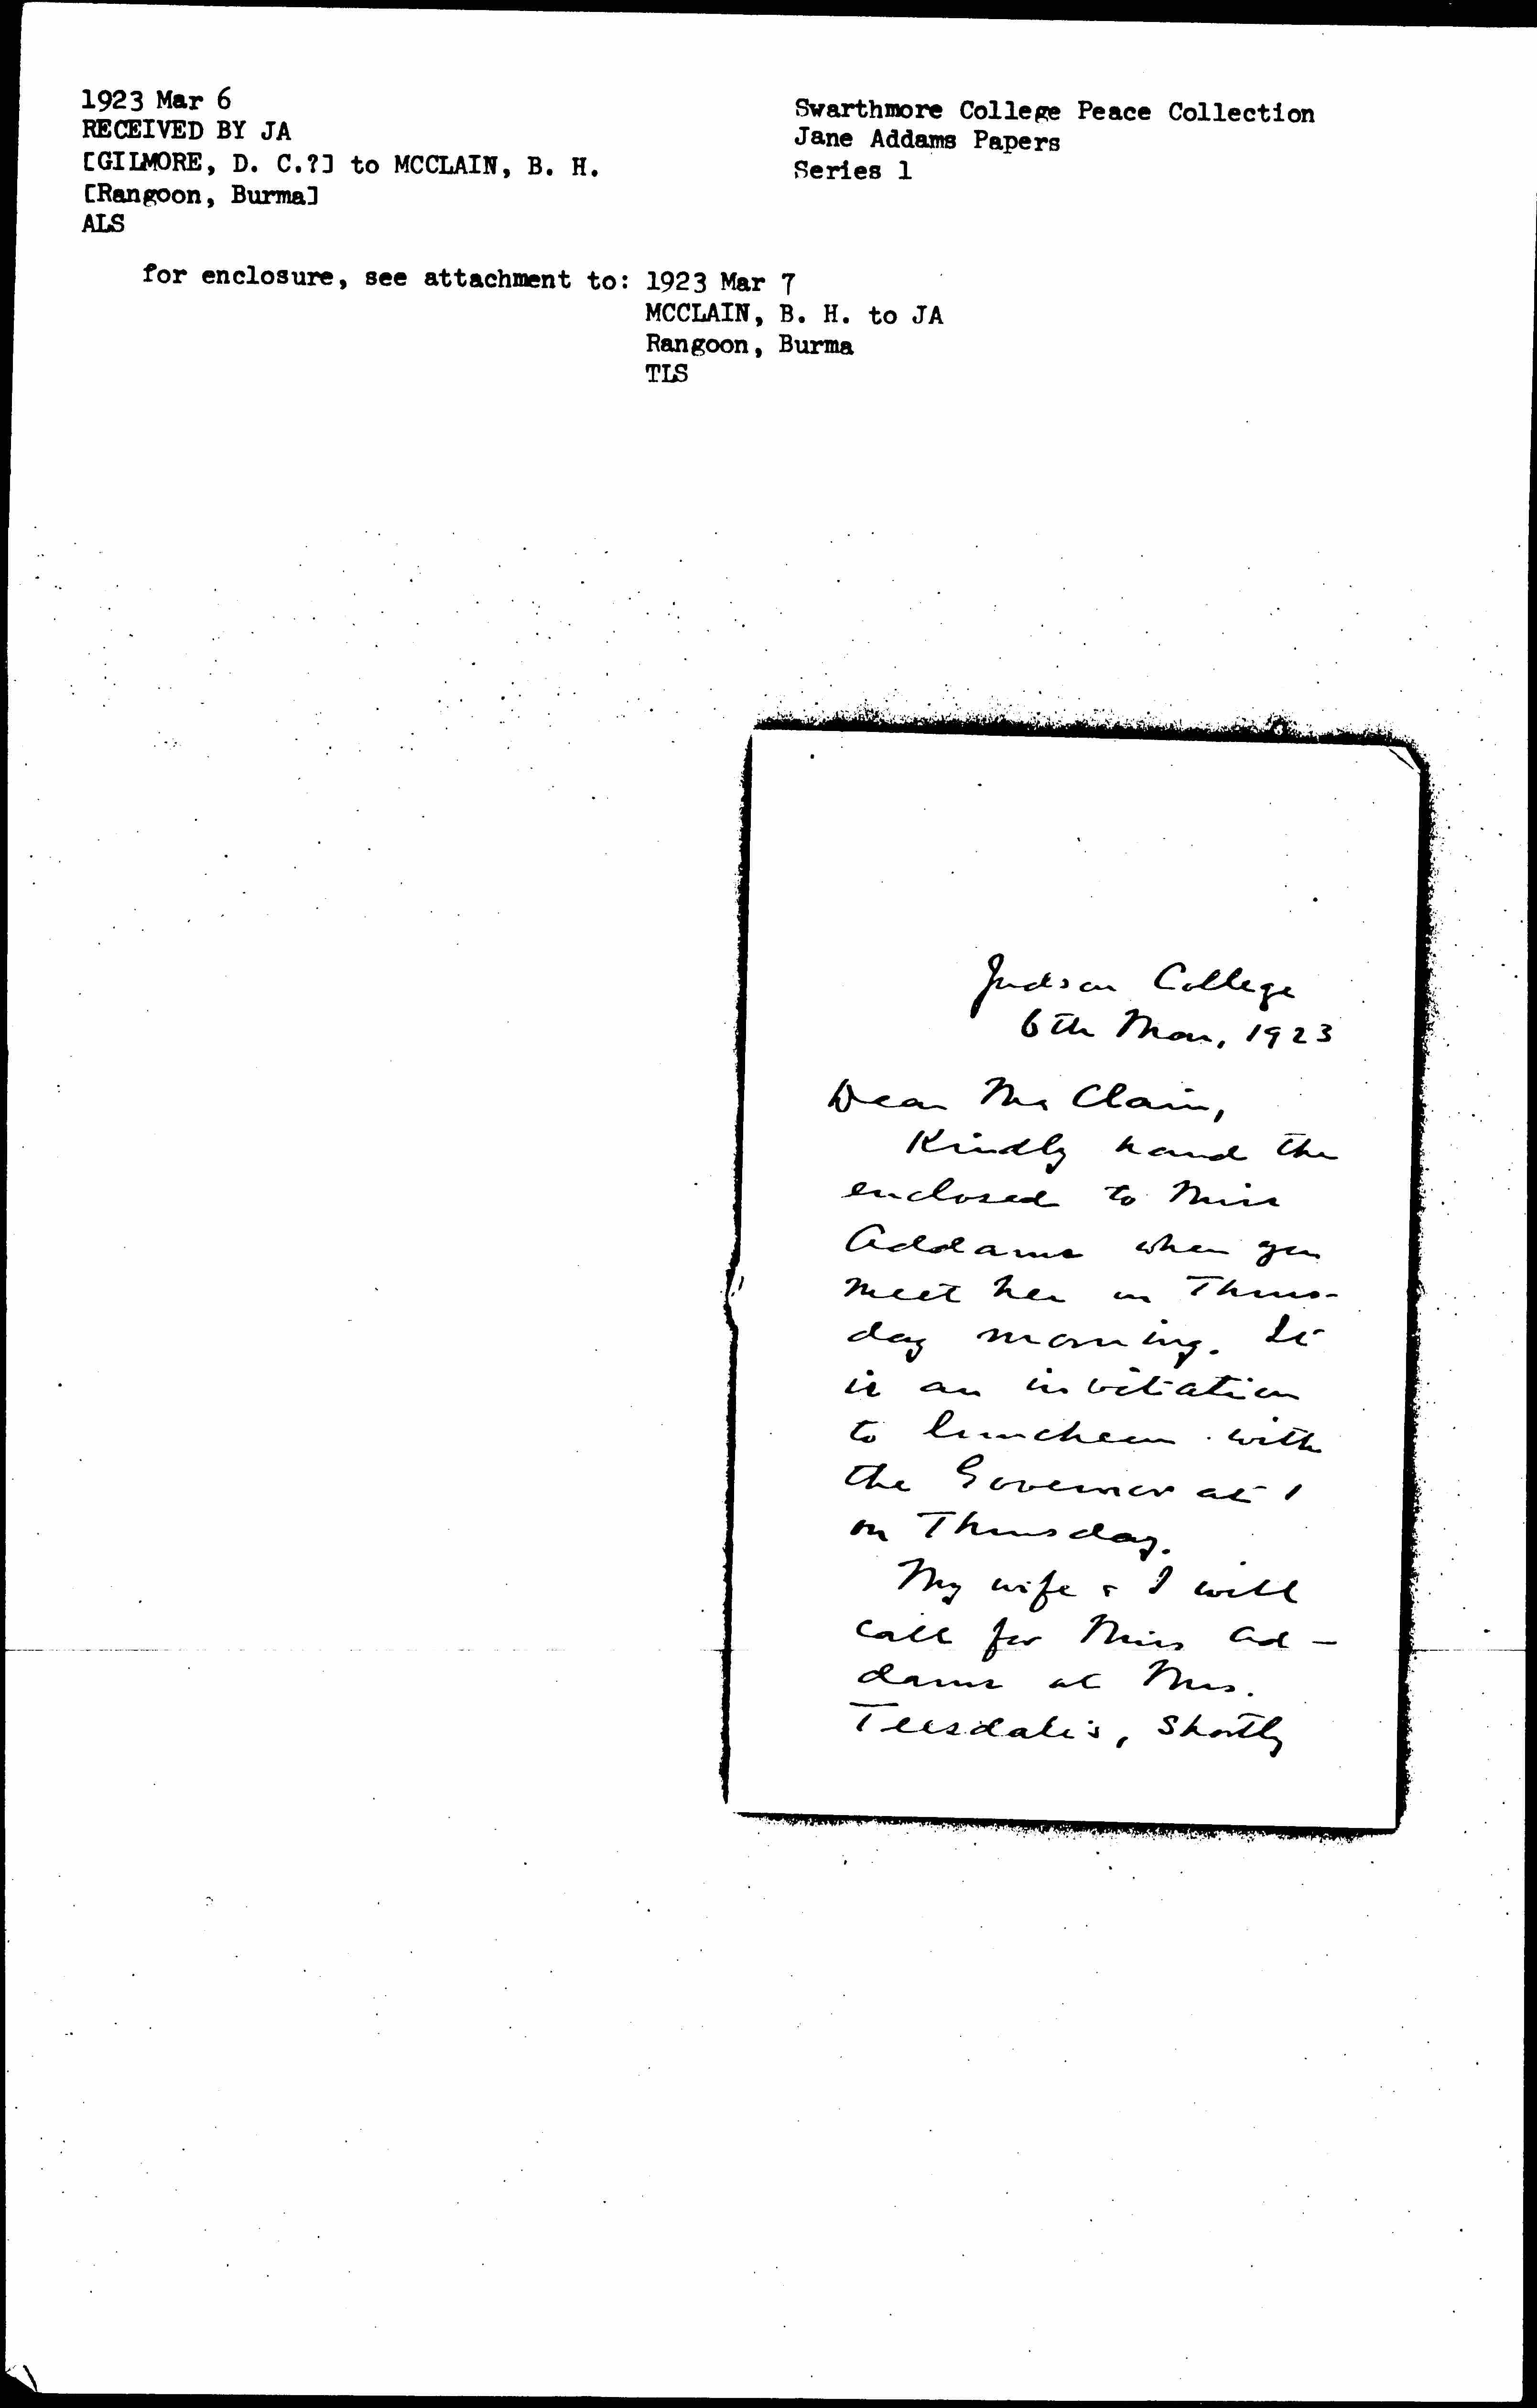 1923 Mar 6
RECEIVED BY JA
[GILMORE, D. C.?] to MCCLAIN, B. H.
[Rangoon, Burma]
ALS
Swarthmore College Peace Collection
Jane Addams Papers
Series 1
for enclosure, see attachment to: 1923 Mar 7
MCCLAIN, B. H. to JA
Rangoon, Burma
TLS
Judson College
6th Mar, 1923
Dear Mc Clain,
Kindly hand the
enclosed to Miss
Addams when you
meet her on Thurs-
day morning. It
is an invitation
to luncheon with
the Governor at 1
on Thursday.
My wife & I will
call for Miss Ad-
dams at Mrs.
Teesdale's, shortly